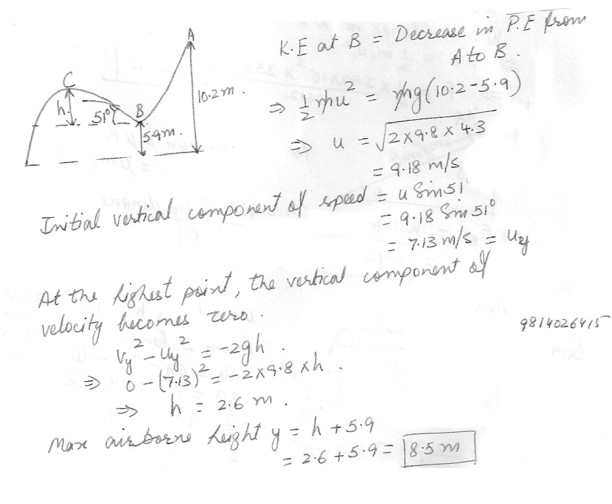 A
K.E at B = Decrease in P.E from
A to B.
C
h.
51°
B
10.2m.
5.9m.
⇒ 1/2 mu² = mg(10.2-5.9)
⇒ u = √2×9.8×4.3
= 9.18 m/s
Initial vertical component of speed = u Sin51°
= 9.18 Sin 51°
= 7.13 m/s = uy
At the highest point, the vertical component of
velocity becomes zero.
9814026415
vy² - uy² = -2gh.
⇒ 0 - (7.13)² = -2×9.8×h.
⇒ h = 2.6 m.
Max airborne height y = h + 5.9
= 2.6 + 5.9 = 8.5 m